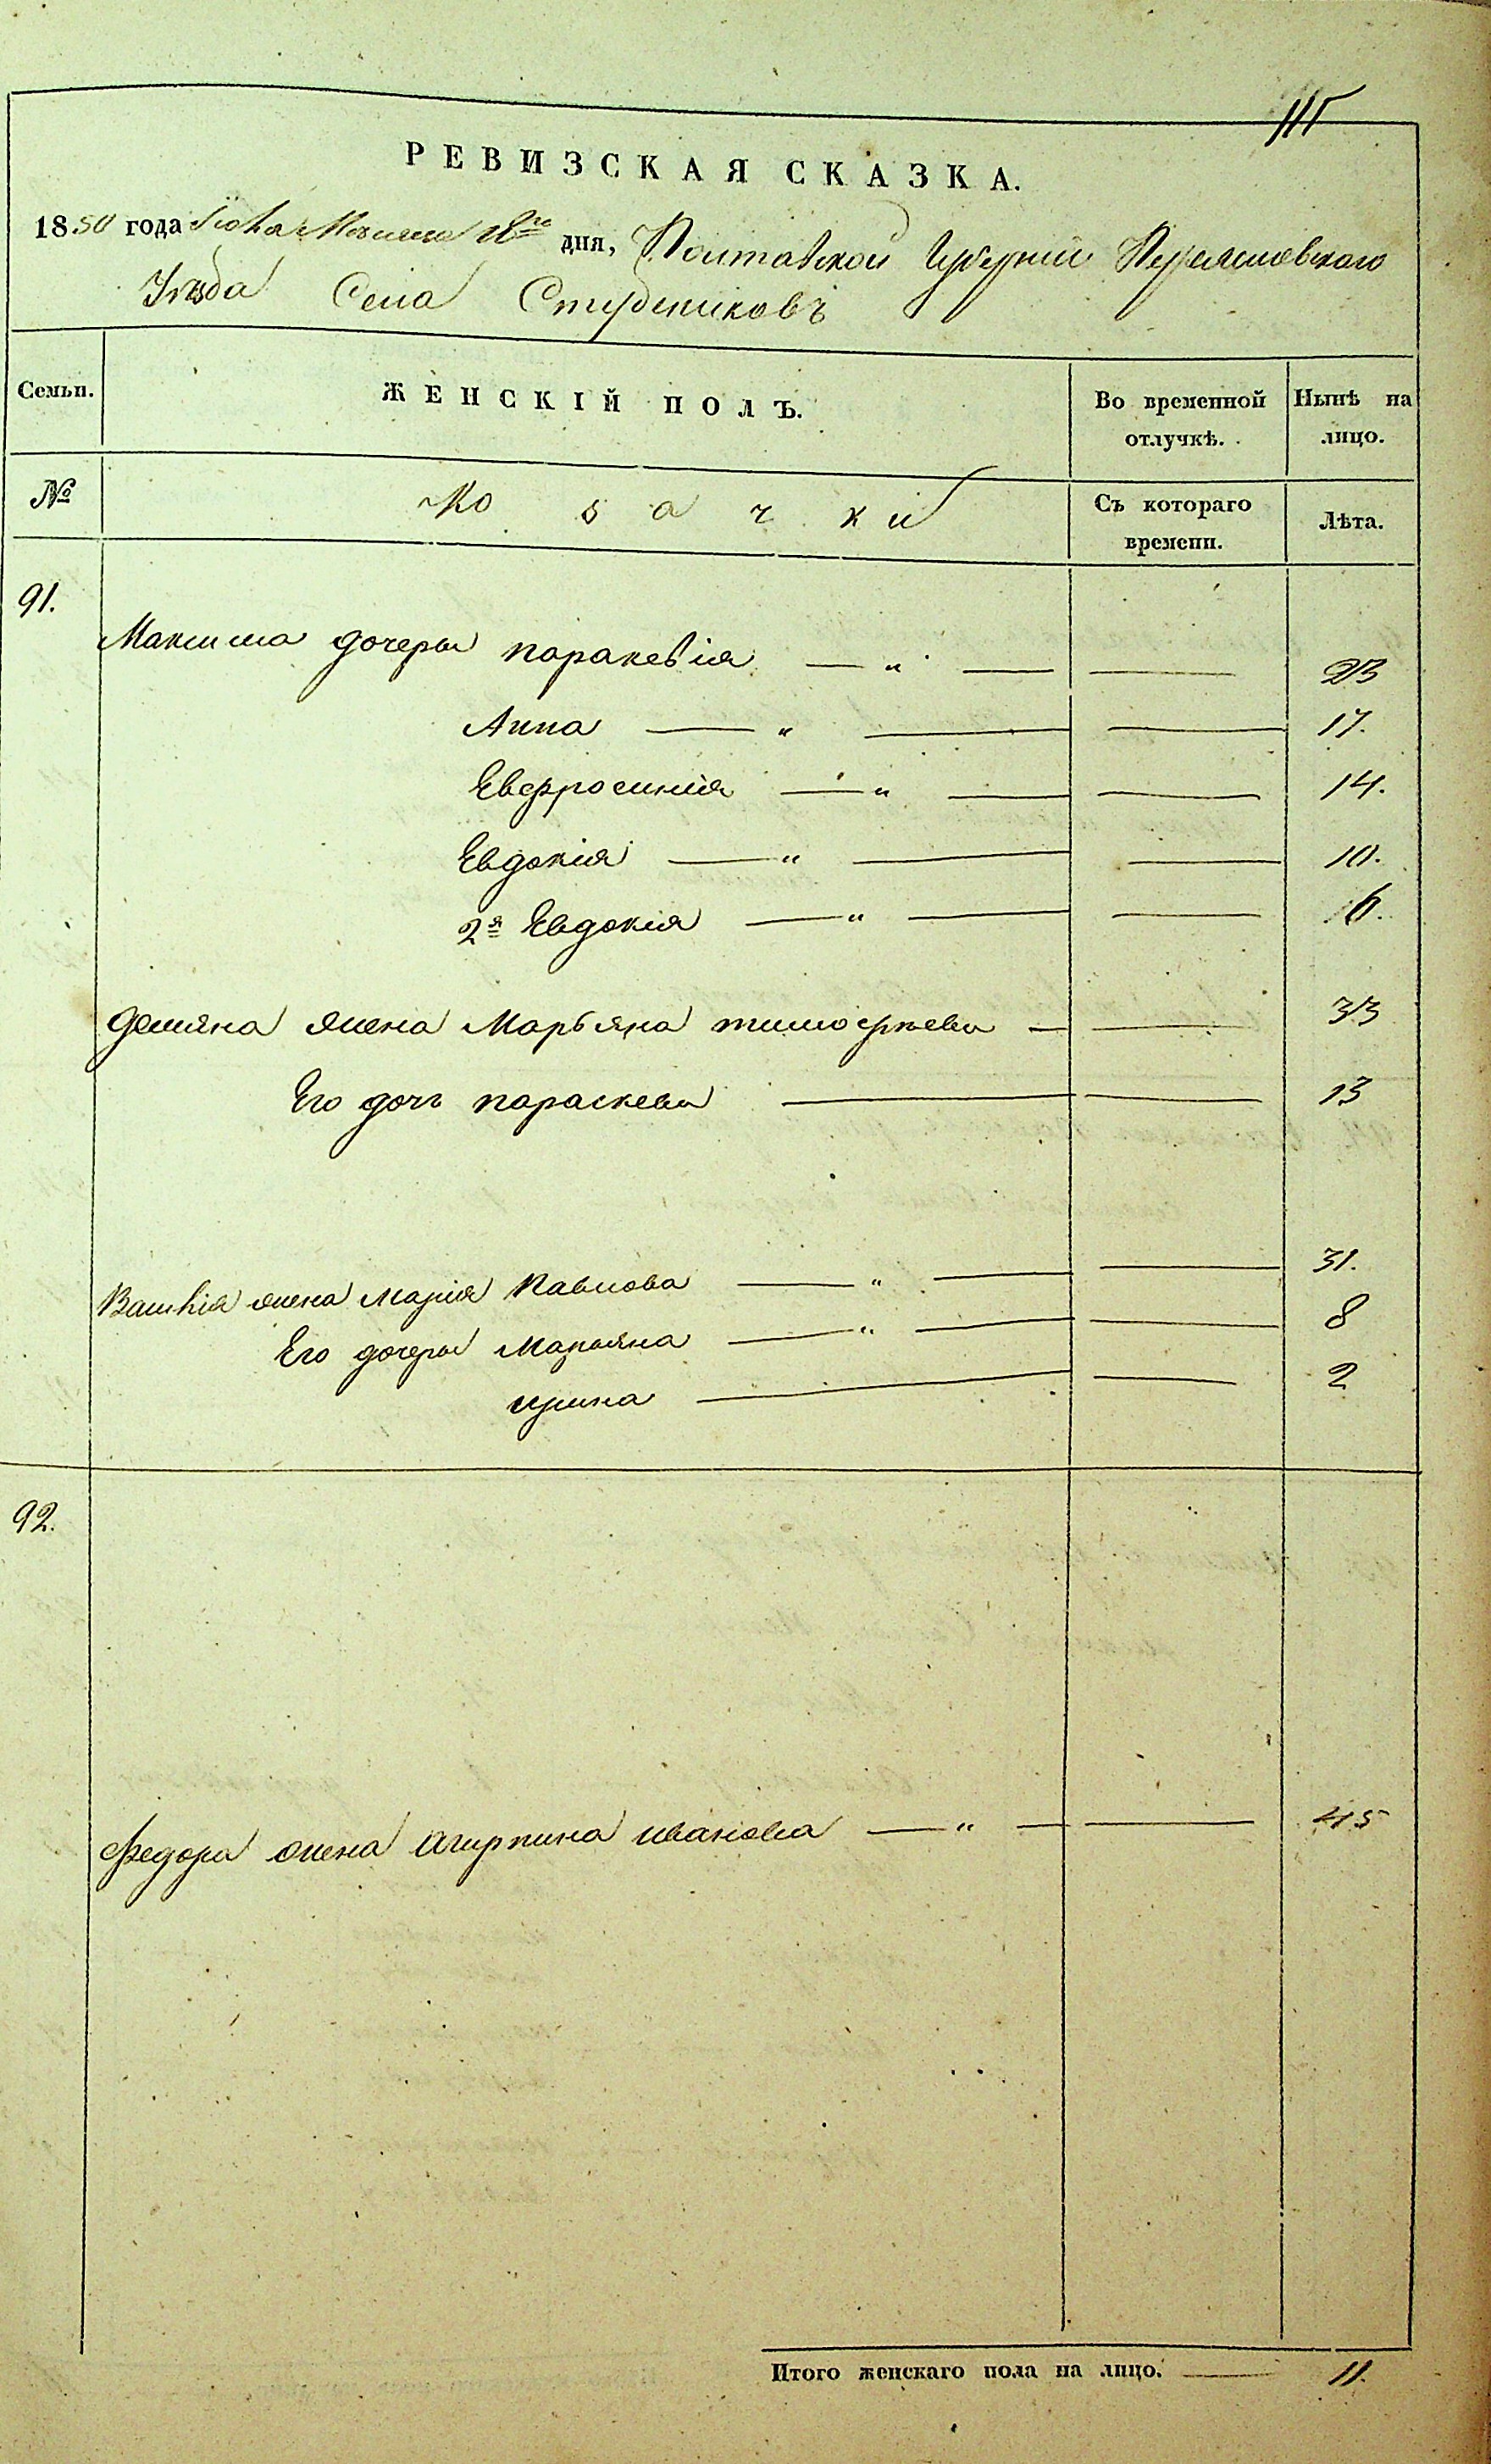 115
РЕВИЗСКАЯ СКАЗКА.
1850 года Месяца 18го дня, Полтавской Губерніи Переяславского
Уѣзда Села Студениковъ
Семьи. ЖЕНСКІЙ ПОЛЪ. Во временной отлучкѣ. Нынѣ на лицо.
№ Козачки Съ котораго времени. Лѣта.
91.
Максима дочеры паракевія — " — — 23
Анна — " — — 17.
Евфросинія — " — — 14.
Евдокія — " — — 10.
2я Евдокія — " — — 6.
Демяна жена Марьяна тимофѣева — — 33
Его дочь параскева — — 13
жена Марія Павлова — " — — 31.
Его дочеры Марьяна — " — — 8
ирина — — 2
92.
Федора жена Агирпина иванова — " — — 45
Итого женскаго пола на лицо. — 11.